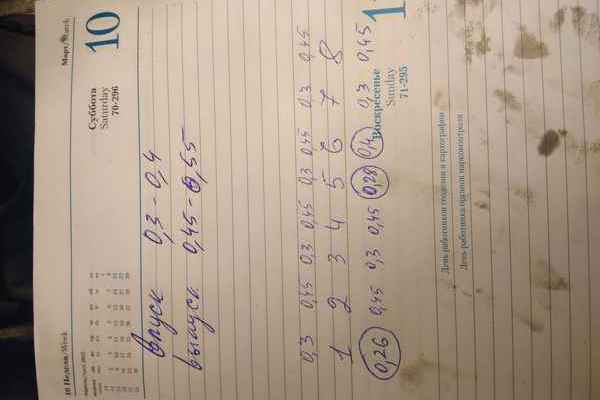 10 Неделя/Week
Март/March
10
Суббота
Saturday
70-296
впуск 0,3 - 0,4
выпуск 0,45 - 0,55
0,3 0,45 0,3 0,45 0,3 0,45 0,3 0,45
1 2 3 4 5 6 7 8
0,26 0,45 0,3 0,45 0,28 0,4 0,3 0,45
1
Воскресенье
Sunday
71-295
День работников геодезии и картографии
День работника органов наркоконтроля